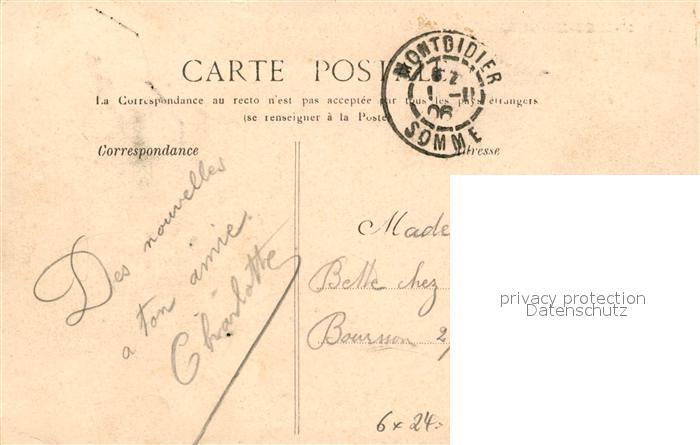 CARTE POSTALE
La Correspondance au recto n'est pas acceptée par tous les pays étrangers
(se renseigner à la Poste)
MONTDIDIER
06
SOMME
Correspondance
Adresse
Des nouvelles
a ton amie.
Charlotte
Made
Belle chez
Bourson
6 x 24.-
privacy protection
Datenschutz